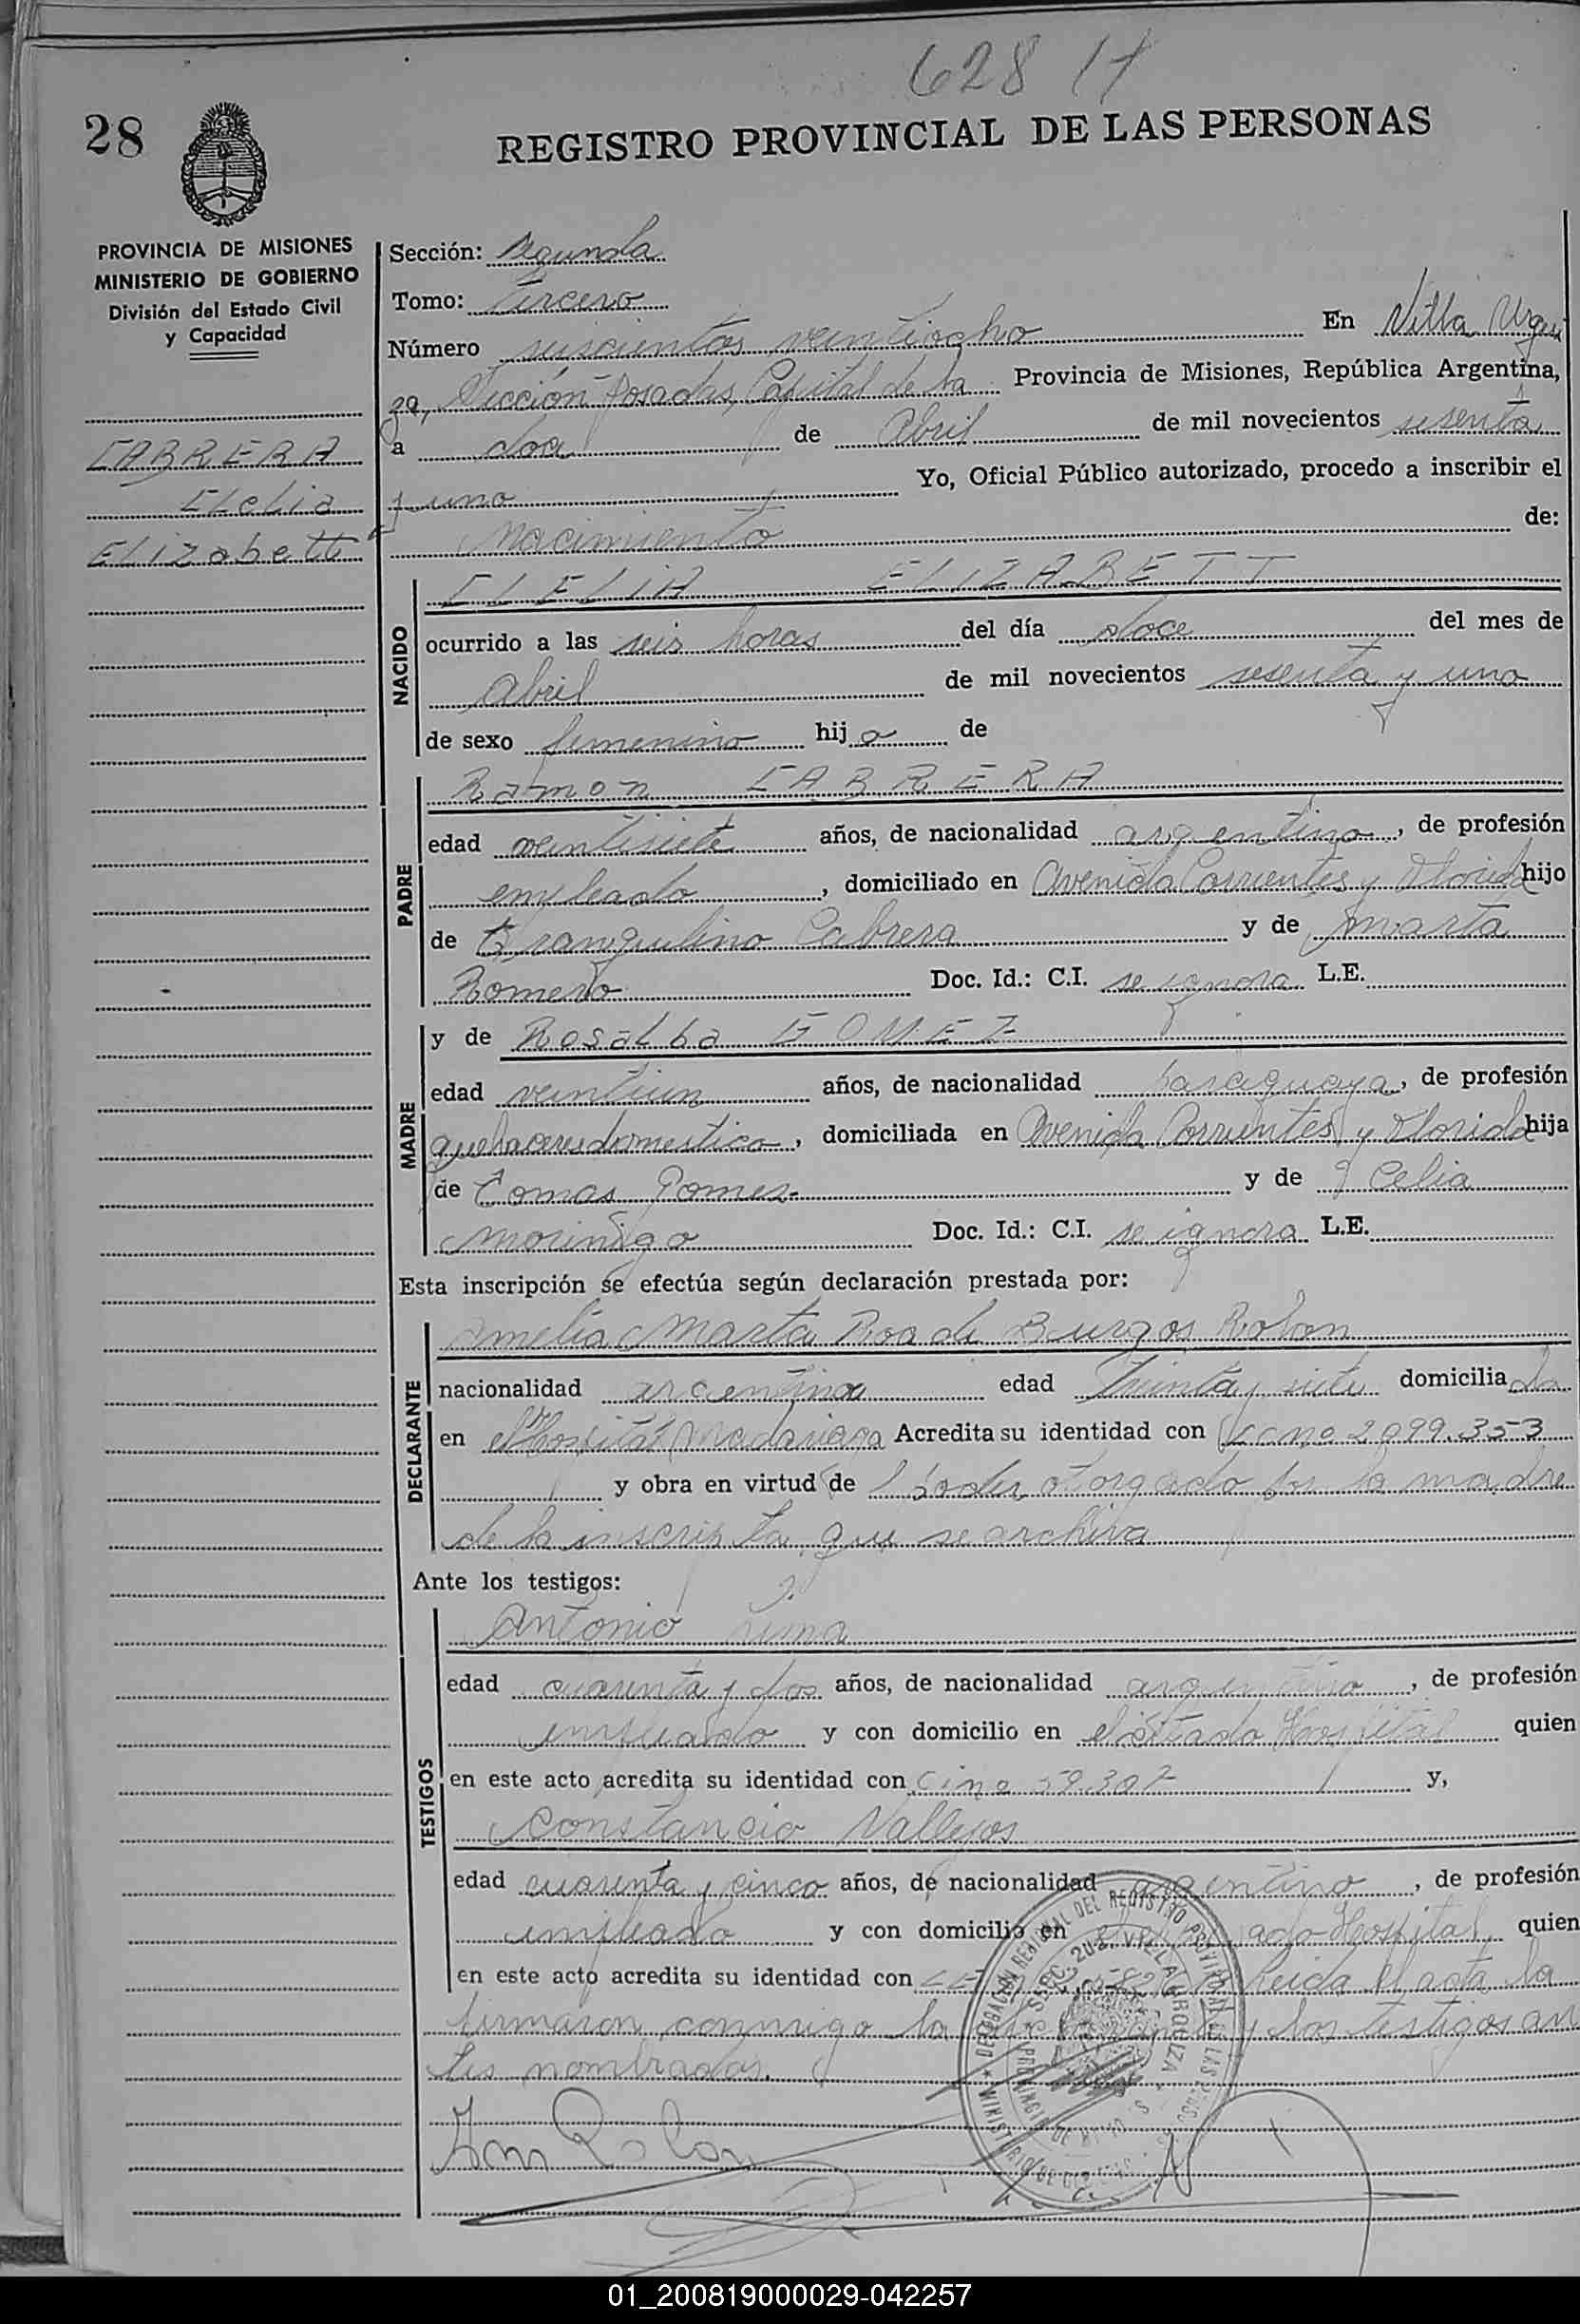 628 17
28
REGISTRO PROVINCIAL DE LAS PERSONAS
PROVINCIA DE MISIONES
MINISTERIO DE GOBIERNO
División del Estado Civil
y Capacidad
CABRERA
Clelia
ELIZabett
Sección: Segunda
Tomo: Tercero
Número seiscientos veintiocho En Villa Urqui
za, Sección Posadas, Capital de la Provincia de Misiones, República Argentina,
a doce de Abril de mil novecientos sesenta
y uno Yo, Oficial Público autorizado, procedo a inscribir el
Nacimiento de:
NACIDO
CLELIA ELIZABETT
ocurrido a las seis horas del día doce del mes de
Abril de mil novecientos sesenta y uno
de sexo femenino hij a de
PADRE
Ramon CABRERA
edad veintisiete años, de nacionalidad argentino, de profesión
empleado, domiciliado en Avenida Corrientes y Florida hijo
de Tranquilino Cabrera y de Marta
Romero Doc. Id.: C.I. se ignora L.E.
MADRE
y de Rosalba GOMEZ
edad veintiun años, de nacionalidad paraguaya, de profesión
quehaceres domestico, domiciliada en Avenida Corrientes y Florida hija
de Tomas Gomez y de Celia
Morinigo Doc. Id.: C.I. se ignora L.E.
Esta inscripción se efectúa según declaración prestada por:
DECLARANTE
Amelia Marta Roa de Burgos Rolon
nacionalidad argentina edad Treinta y siete domicilia da
en el Hospital Madariaga Acredita su identidad con 2.099.353
y obra en virtud de poder otorgado por la madre
de la inscripta que se archiva
Ante los testigos:
TESTIGOS
Antonio Lima
edad cuarenta y dos años, de nacionalidad argentino, de profesión
empleado y con domicilio en el citado Hospital quien
en este acto acredita su identidad con Ci no 59.307 y,
Constancio Vallejos
edad cuarenta y cinco años, de nacionalidad argentino, de profesión
empleado y con domicilio en el Hospital, quien
en este acto acredita su identidad con Leida el acta la
firmaron conmigo la y los testigos an
tes nombrados.
DELEGACION REGIONAL DEL REGISTRO PROVINCIAL DE LAS
MINISTERIO DE
SECC. 2da. VILLA URQUIZA
PROVINCIA DE
Rolon
01_200819000029-042257